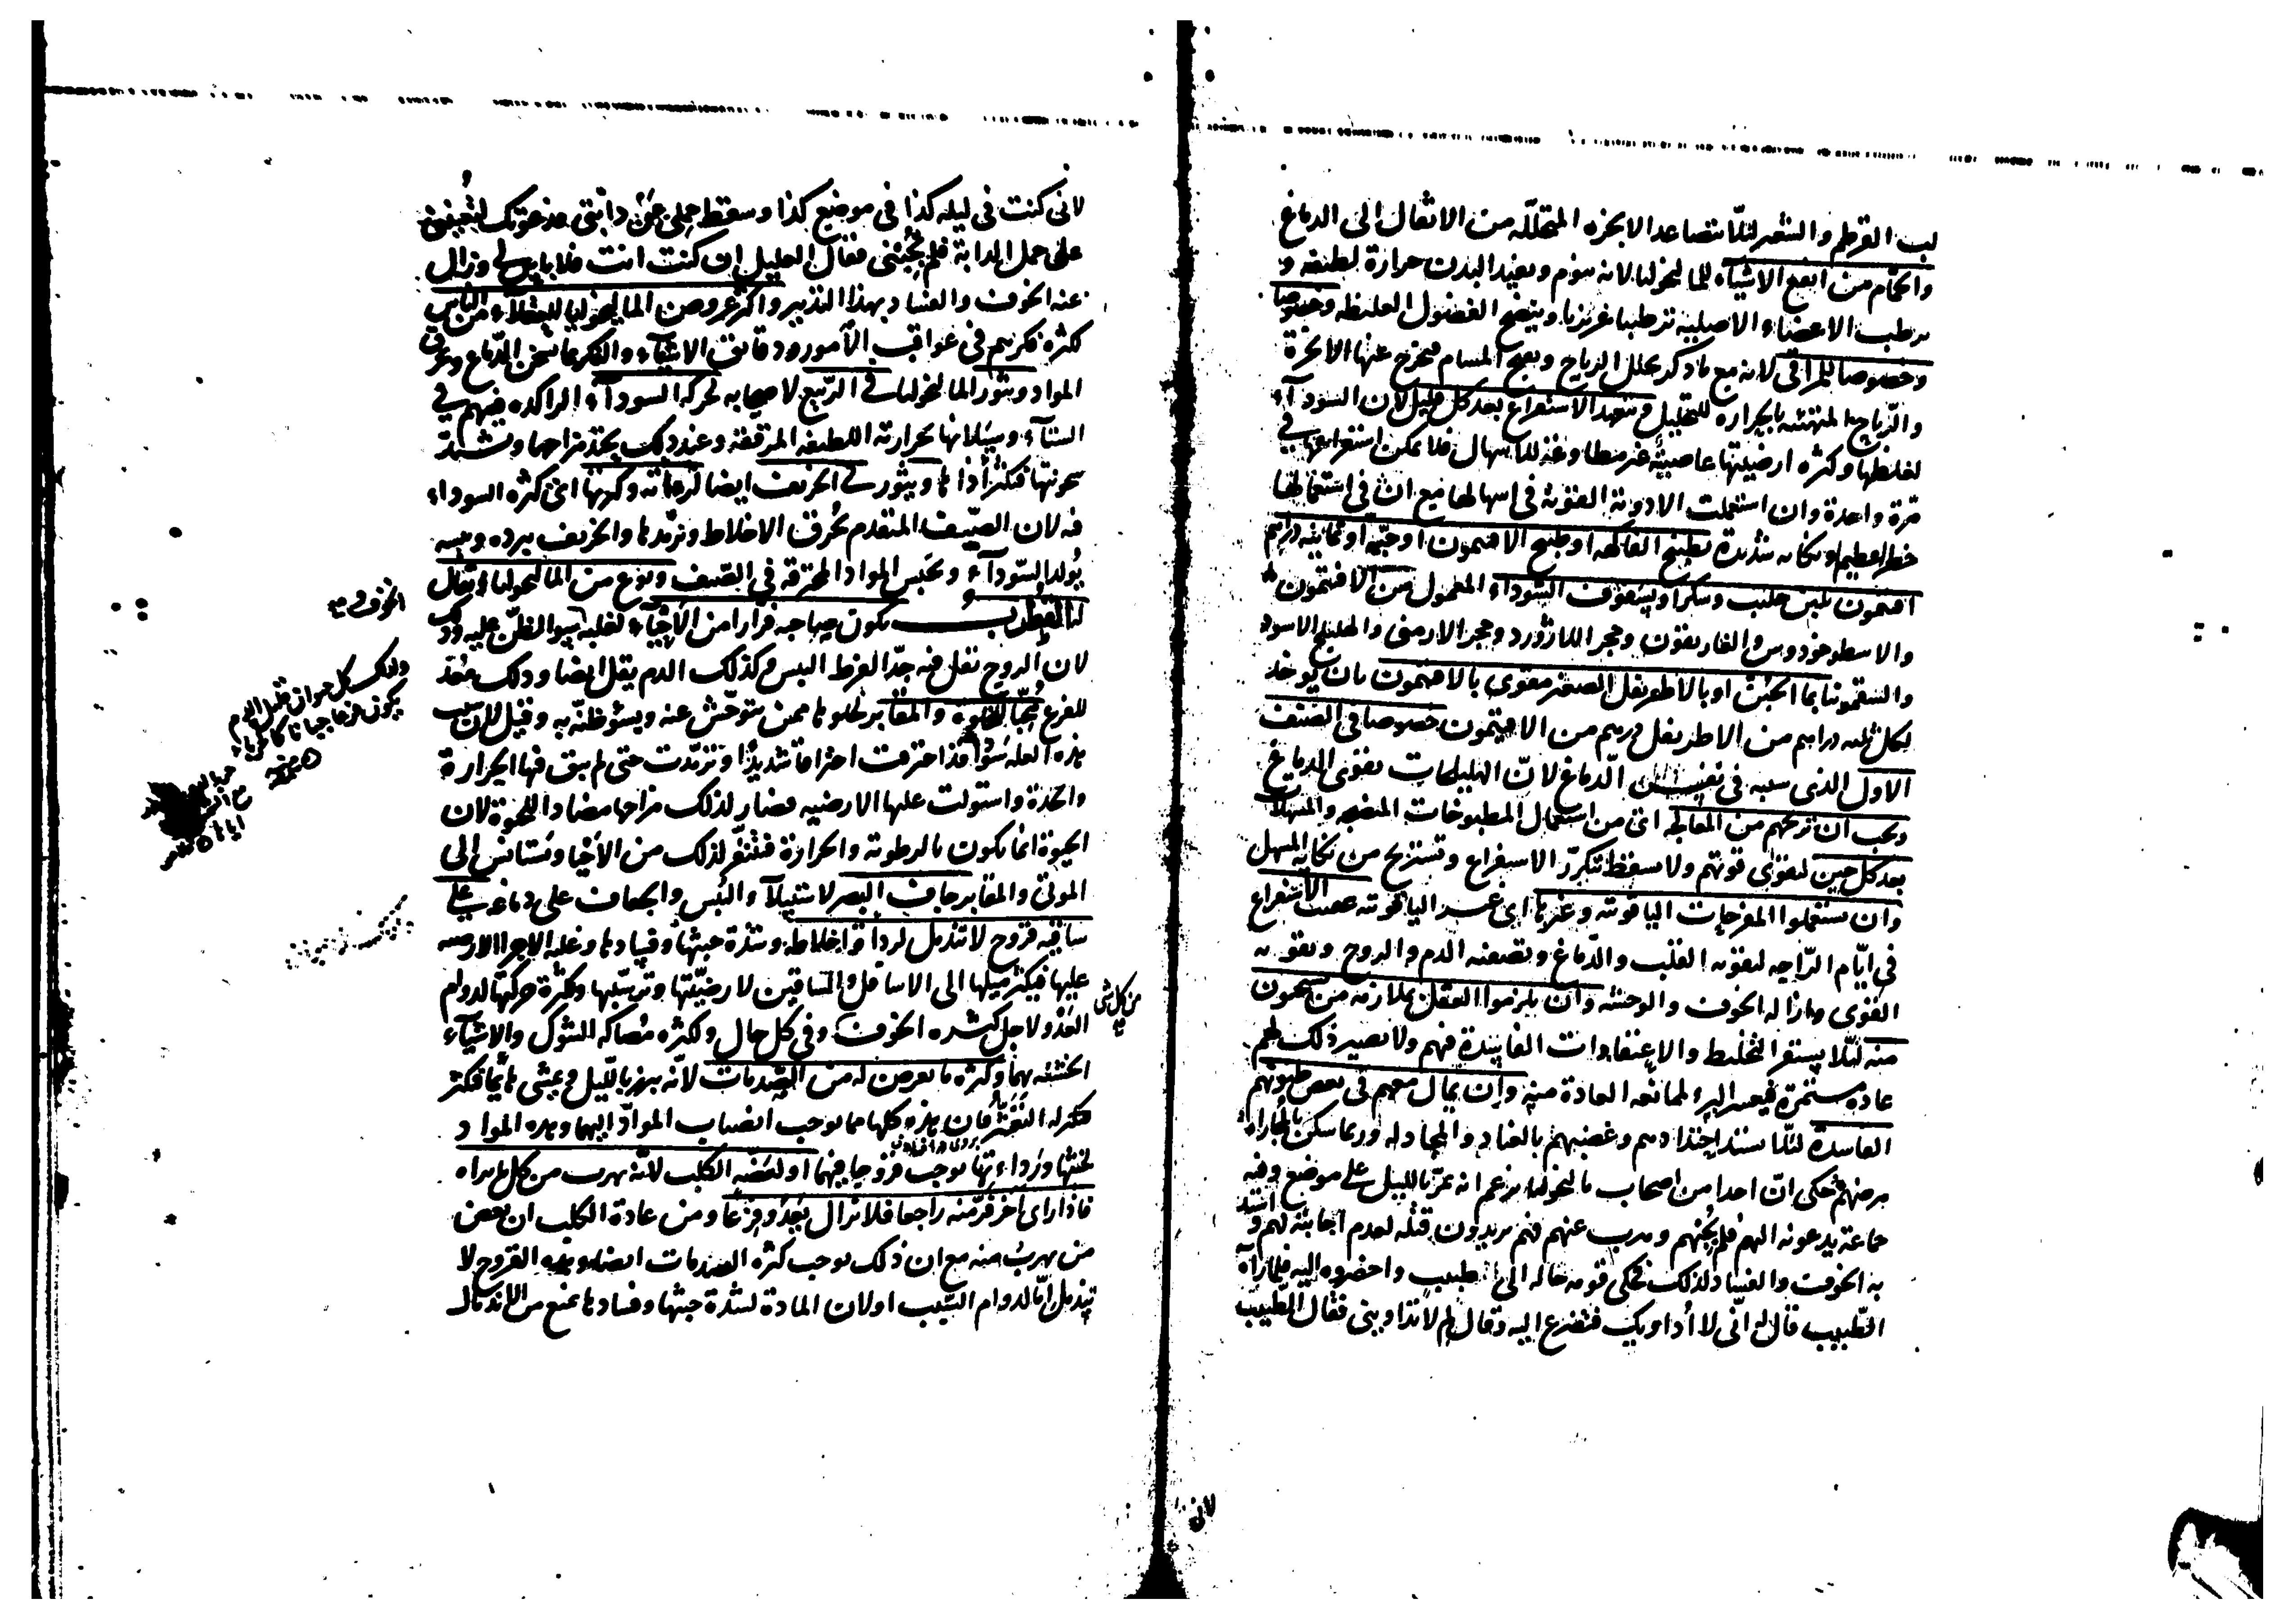 لب القرطم والشعير لئلا يتصاعد الابخره المتحلله من الاثفال الى الدماغ
والحمام من انفع الاشياء للمالنخوليا لانه ينوم ويفيد البدن حرارة لطيفه و
يرطب الاعضاء الاصليه ترطيبا غريزيا وينضج الفضول الغليظه وخصوصا
وخصوصا للمراقى لانه مع ما ذكر يحلل الرياح ويفتح المسام فيخرج عنها الابخرة
والرياح المتهيئه بالحراره للتحليل ويتعهد الاستفراغ بعد كل قليل لان السوداء
لغلظها وكثره ارضيتها عاصية غير مطاوعة للاسهال فلا يمكن استفراغها فى
مرة واحدة وان استعملت الادوية القوية فى اسهالها مع ان فى استعمالها
خطر عظيم ونكايه شديدة بطبيخ الفاكهه او طبيخ الافتيمون او حبه او ثمانيه دراهم
افتيمون بلبن حليب وسكر او بسفوف السوداء المعمول من الافتيمون
والاسطوخودوس والغاريقون وحجر اللازورد وحجر الارمنى والهليلج الاسود
والسقمونيا بماء الجبن او بالاطريفل الصغير مقوى بالافتيمون بان يوخذ
لكل ثلثه دراهم من الاطريفل درهم من الافتيمون خصوصا فى الصنف
الاول الذى سببه فى نفس الدماغ لان الهليلجات تقوى الدماغ
ويجب ان تريحهم من المعالجه اى من استعمال المطبوخات المنضجه والمسهلات
بعد كل حين لتقوى قوتهم ولا تسقط بتكرر الاستفراغ وتستريح من نكاية المسهل
وان يستعملوا المفرحات الياقوتيه وغيرها اى غير الياقوتيه عقيب الاستفراغ
فى ايام الراحه لتقويه القلب والدماغ وتصفيه الدم والروح وتقويه
القوى وازاله الخوف والوحشه وان يلزموا العقل بملازمه من يحتشمون
منه لئلا يستقر التخليط والاعتقادات الفاسدة فيهم ولا تصير ذلك لهم
عاده مستمرة فيعسر البرء لممانعه العادة منه وان يمال معهم فى بعض ظنونهم
الفاسدة لئلا يشتد احتدادهم وغضبهم بالعناد والمجادله وربما سكن بالمجاراة
مرضهم حكى ان احدا من اصحاب مالنخوليا يزعم انه يمر بالليل على موضع وفيه
جماعة يدعونه اليهم فلم يجبهم وهرب عنهم فهم يريدون قتله لعدم اجابته لهم واشتد
به الخوف والفساد لذلك فحكى قومه حاله الى طبيب واحضروه اليه فلما رآه
الطبيب قال له انى لا اداويك فتضرع اليه وقال لم لا تداوينى فقال الطبيب
لانى
لانى كنت فى ليله كذا فى موضع كذا وسقط حملى عن دابتى فدعوتك لتعيننى
على حمل الدابة فلم تجبنى فقال العليل ان كنت انت فلا باس لى وزال
عنه الخوف والفساد بهذا التدبير واكثر عروض المالنخوليا للعقلاء من الناس
لكثره فكرهم فى عواقب الامور ودقائق الاشياء والفكر مما يسخن الدماغ ويحرق
المواد ويثور المالنخوليا فى الربيع لاصحابه لحركه السوداء الراكده فيهم فى
الشتاء وسيلانها بحرارته اللطيفه المرققه وعند ذلك يحتد مزاجها ويشتد
سخونتها فيكثر اذاها ويثور فى الخريف ايضا لرداءته وكثرتها اى كثره السوداء
فيه لان الصيف المتقدم يحرق الاخلاط ويرمدها والخريف ببرده ويبسه
يولد السوداء ويحبس المواد المحترقه فى الصيف ونوع من المالنخوليا يقال
له القطرب يكون صاحبه فرارا من الاحياء لغلبه سوء الظن عليه وذلك
لان الروح تقل فيه جدا لفرط اليبس وكذلك الدم يقل ايضا وذلك معد
للفزع محبا للخلوة والمقابر لخلوها ممن يتوحش عنه ويسوء ظنه به وقيل لان سبب
هذه العله سوداء قد احترقت احتراقا شديدا وترمدت حتى لم يبق فيها الحرارة
والحدة واستولت عليها الارضيه فصار لذلك مزاجها مضادا للحيوة لان
الحيوة انما يكون بالرطوبة والحرارة فتنفر لذلك من الاحياء وتستانس الى
الموتى والمقابر جاف البصر لاستيلاء اليبس والجفاف على دماغه على
ساقيه قروح لا تندمل لرداءة اخلاطه وشدة خبثها وفسادها وغلبه الاجزاء الارضيه
عليها فيكثر ميلها الى الاسافل والساقين لارضيتها وترسبها وكثرة حركتها لدوام
العدو لاجل كثره الخوف وفى كل حال ولكثره مصاكه الشوك والاشياء
الخشنه بهما وكثره ما يعرض له من الصدمات لانه يبرز بالليل ويمشى هائما فيكثر
فيكثر له التعثر فان هذه كلها مما يوجب انصباب المواد اليهما وهذه المواد
لخبثها ورداءتها يوجب قروحا فيهما او لعضه الكلب لانه يهرب من كل ما يراه
فاذا راى آخر فر منه راجعا فلا يزال يعدو فزعا ومن عادة الكلب ان يعض
من يهرب منه مع ان ذلك يوجب كثره الصدمات ايضا وهذه القروح لا
تندمل اما لدوام السبب او لان المادة لشدة خبثها وفسادها يمنع من الاندمال
الخوف
وكذلك كل حيوان قليل الدم
يكون فزعا جبانا
من كل شى